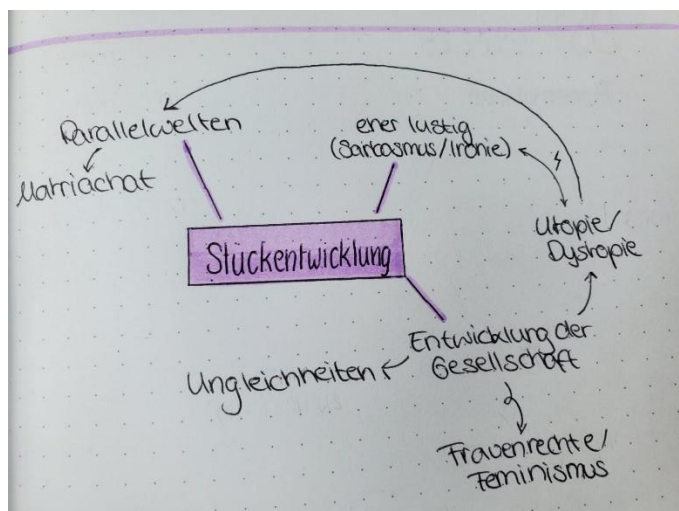 Parallelwelten
Matriachat
eher lustig
(Sarkasmus/Ironie)
Utopie/
Dystopie
Stückentwicklung
Entwicklung der
Gesellschaft
Ungleichheiten
Frauenrechte/
Feminismus